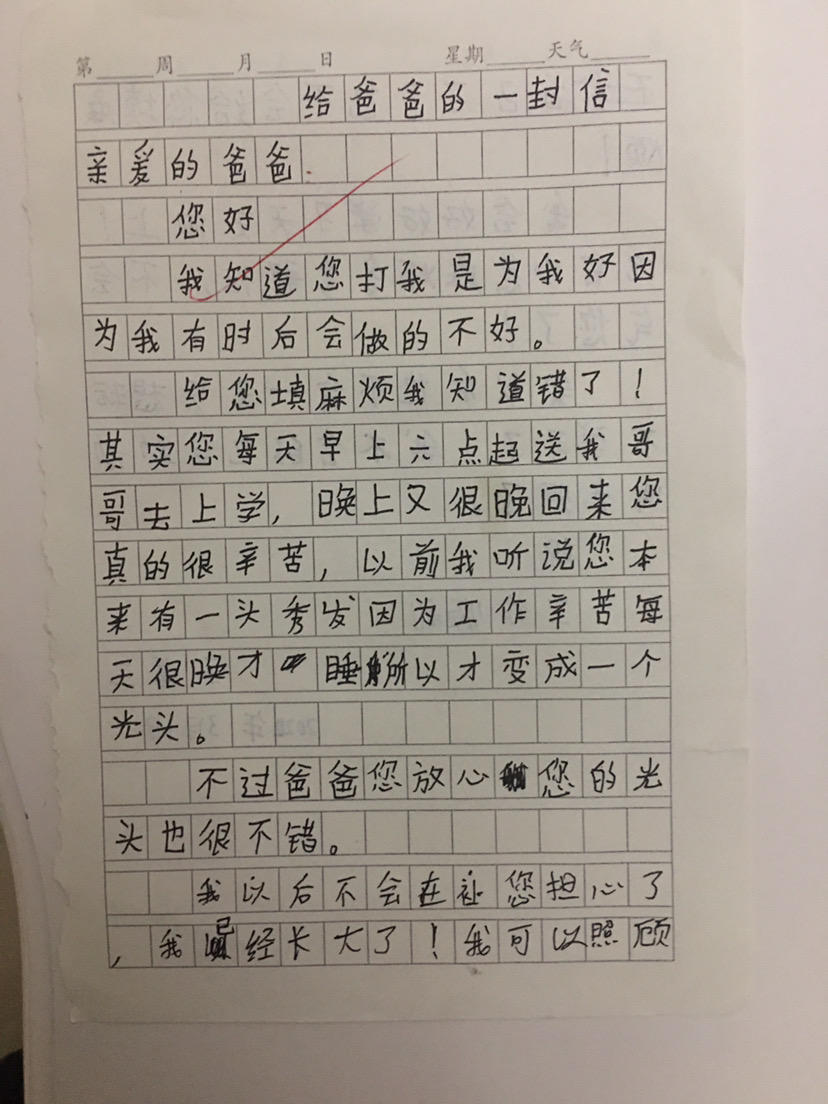 第 周 月 日 星期 天气
给爸爸的一封信
亲爱的爸爸.
您好
我知道您打我是为我好因
为我有时后会做的不好。
给您填麻烦我知道错了！
其实您每天早上六点起送我哥
哥去上学，晚上又很晚回来您
真的很辛苦，以前我听说您本
来有一头秀发因为工作辛苦每
天很晚才睡所以才变成一个
光头。
不过爸爸您放心您的光
头也很不错。
我以后不会在让您担心了
，我已经长大了！我可以照顾